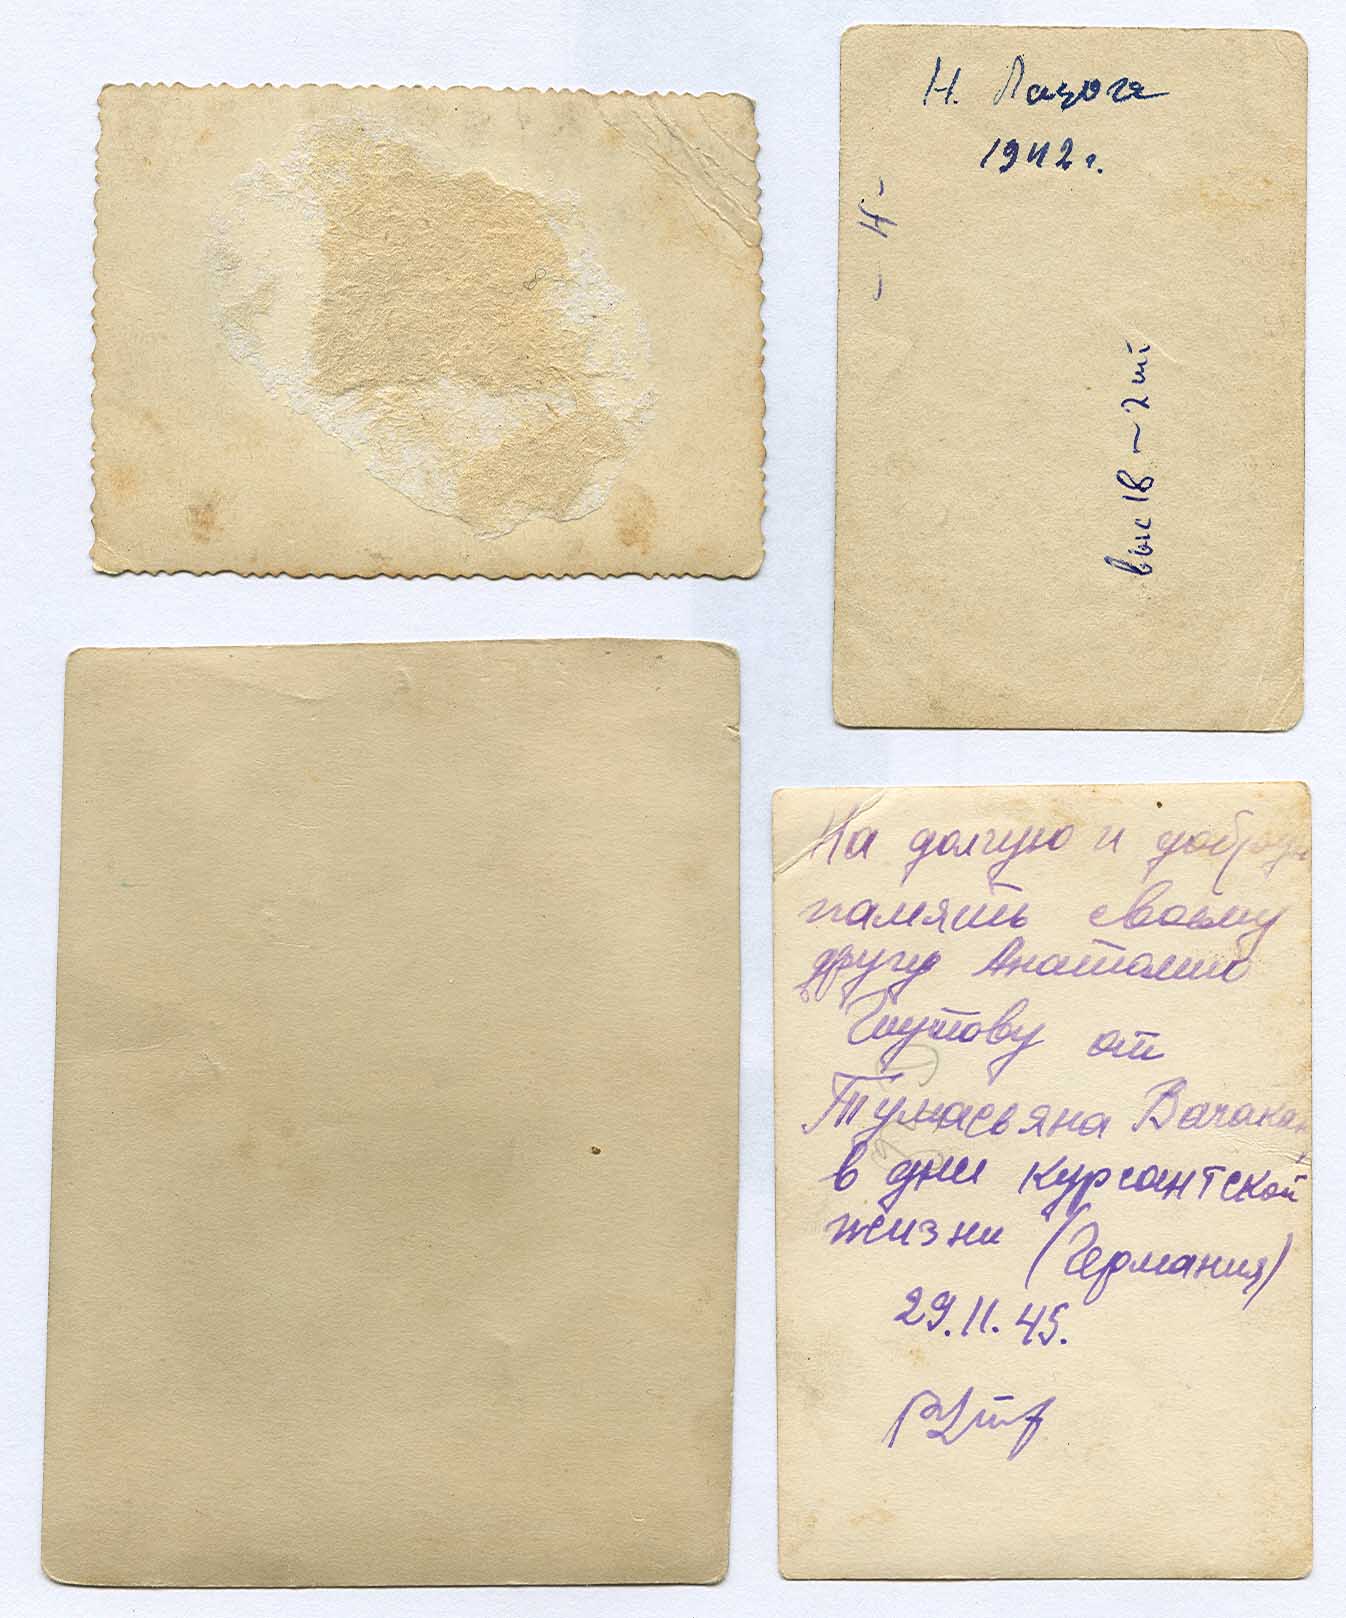 Н. Лазога
1942 г.
- Н -
выс 18 ~ 2 шт
На долгую и добрую
память своему
другу Анатолию
от
Тумасьяна Вачакан
в дни курсантской
жизни (Германия)
29.11.45.